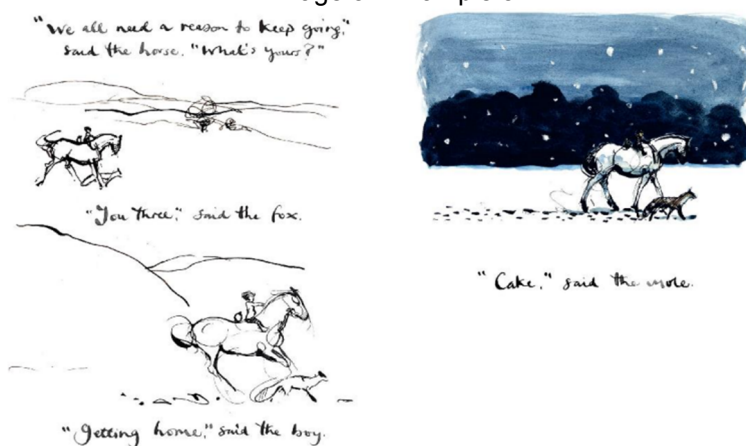 "We all need a reason to keep going,"
said the horse. "What's yours?"
"You three," said the fox.
"Getting home," said the boy.
"Cake," said the mole.